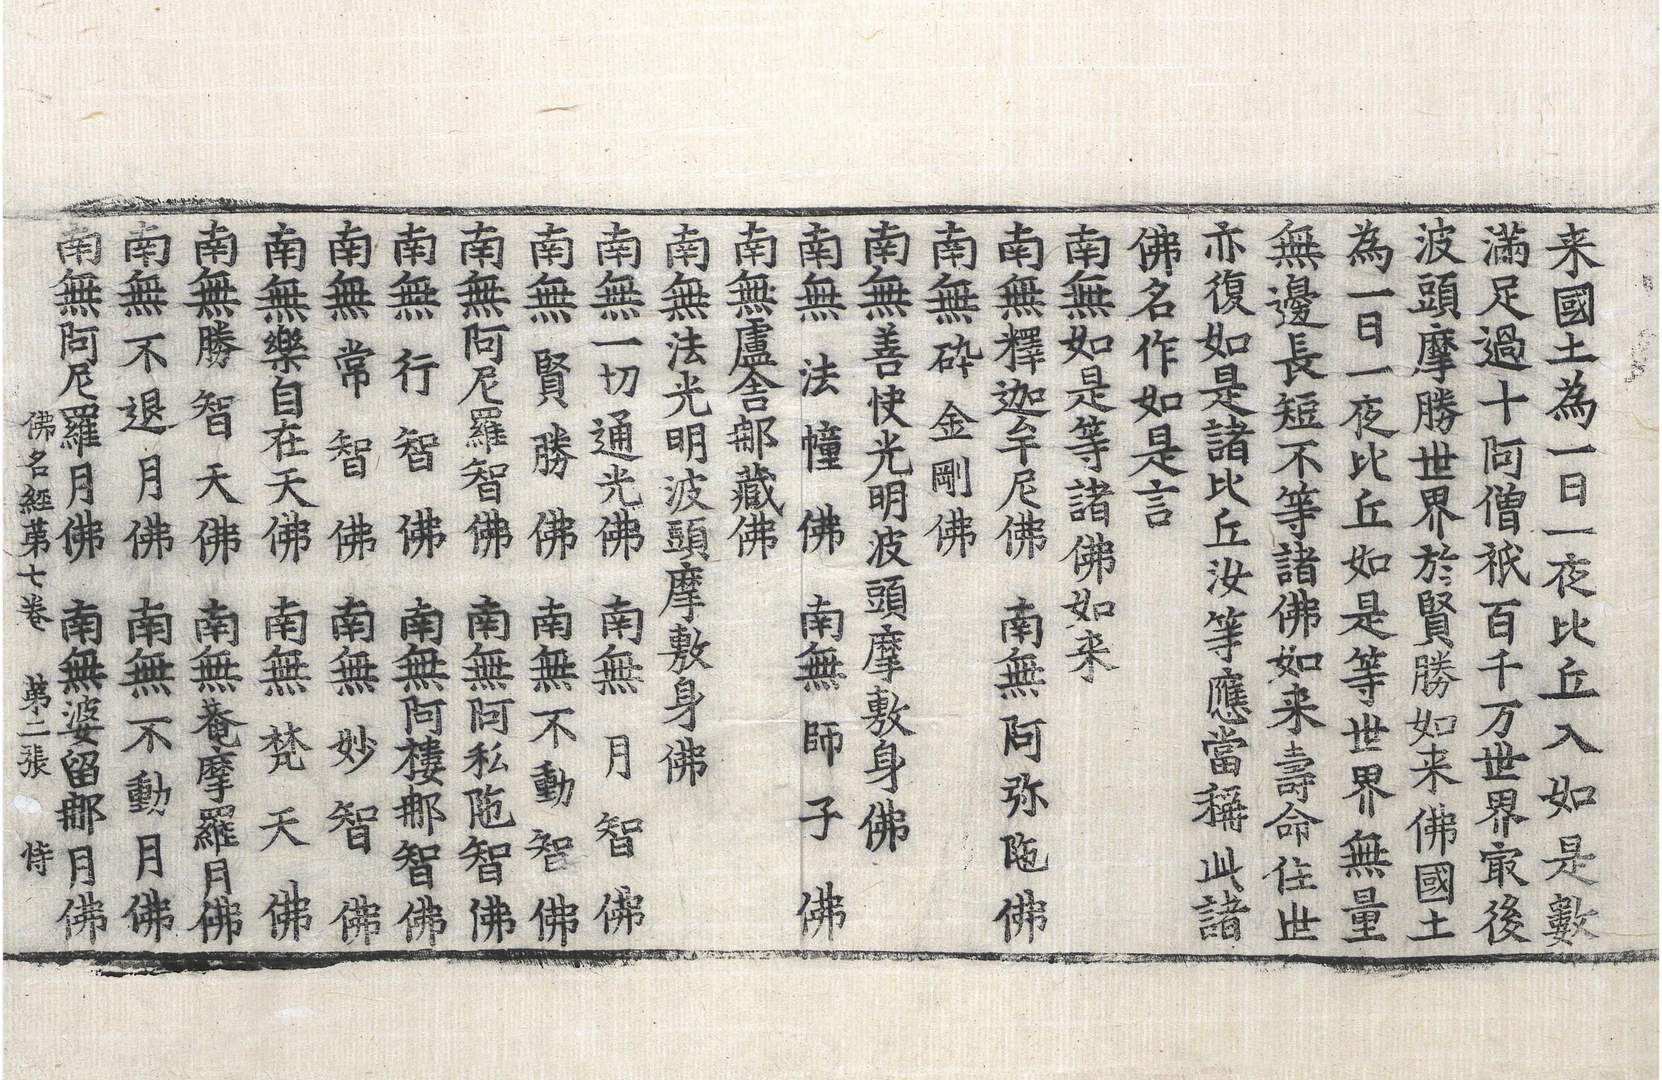 来國土為一日一夜比丘入如是數
滿足過十阿僧祇百千万世界㝡後
波頭摩勝世界於賢勝如来佛國土
為一日一夜比丘如是等世界無量
無邊長短不等諸佛如来壽命住世
亦復如是諸比丘汝等應當稱此諸
佛名作如是言
南無如是等諸佛如来
南無釋迦牟尼佛　南無阿弥陁佛
南無碎金剛佛
南無善快光明波頭摩敷身佛
南無法幢佛　南無師子佛
南無盧舍那藏佛
南無法光明波頭摩敷身佛
南無一切通光佛　南無月智佛
南無賢勝佛　南無不動智佛
南無阿尼羅智佛　南無阿私陁智佛
南無行智佛　南無阿樓那智佛
南無常智佛　南無妙智佛
南無樂自在天佛　南無梵天佛
南無勝智天佛　南無菴摩羅月佛
南無不退月佛　南無不動月佛
南無阿尼羅月佛　南無婆留那月佛
佛名經苐七卷　苐二張　恃